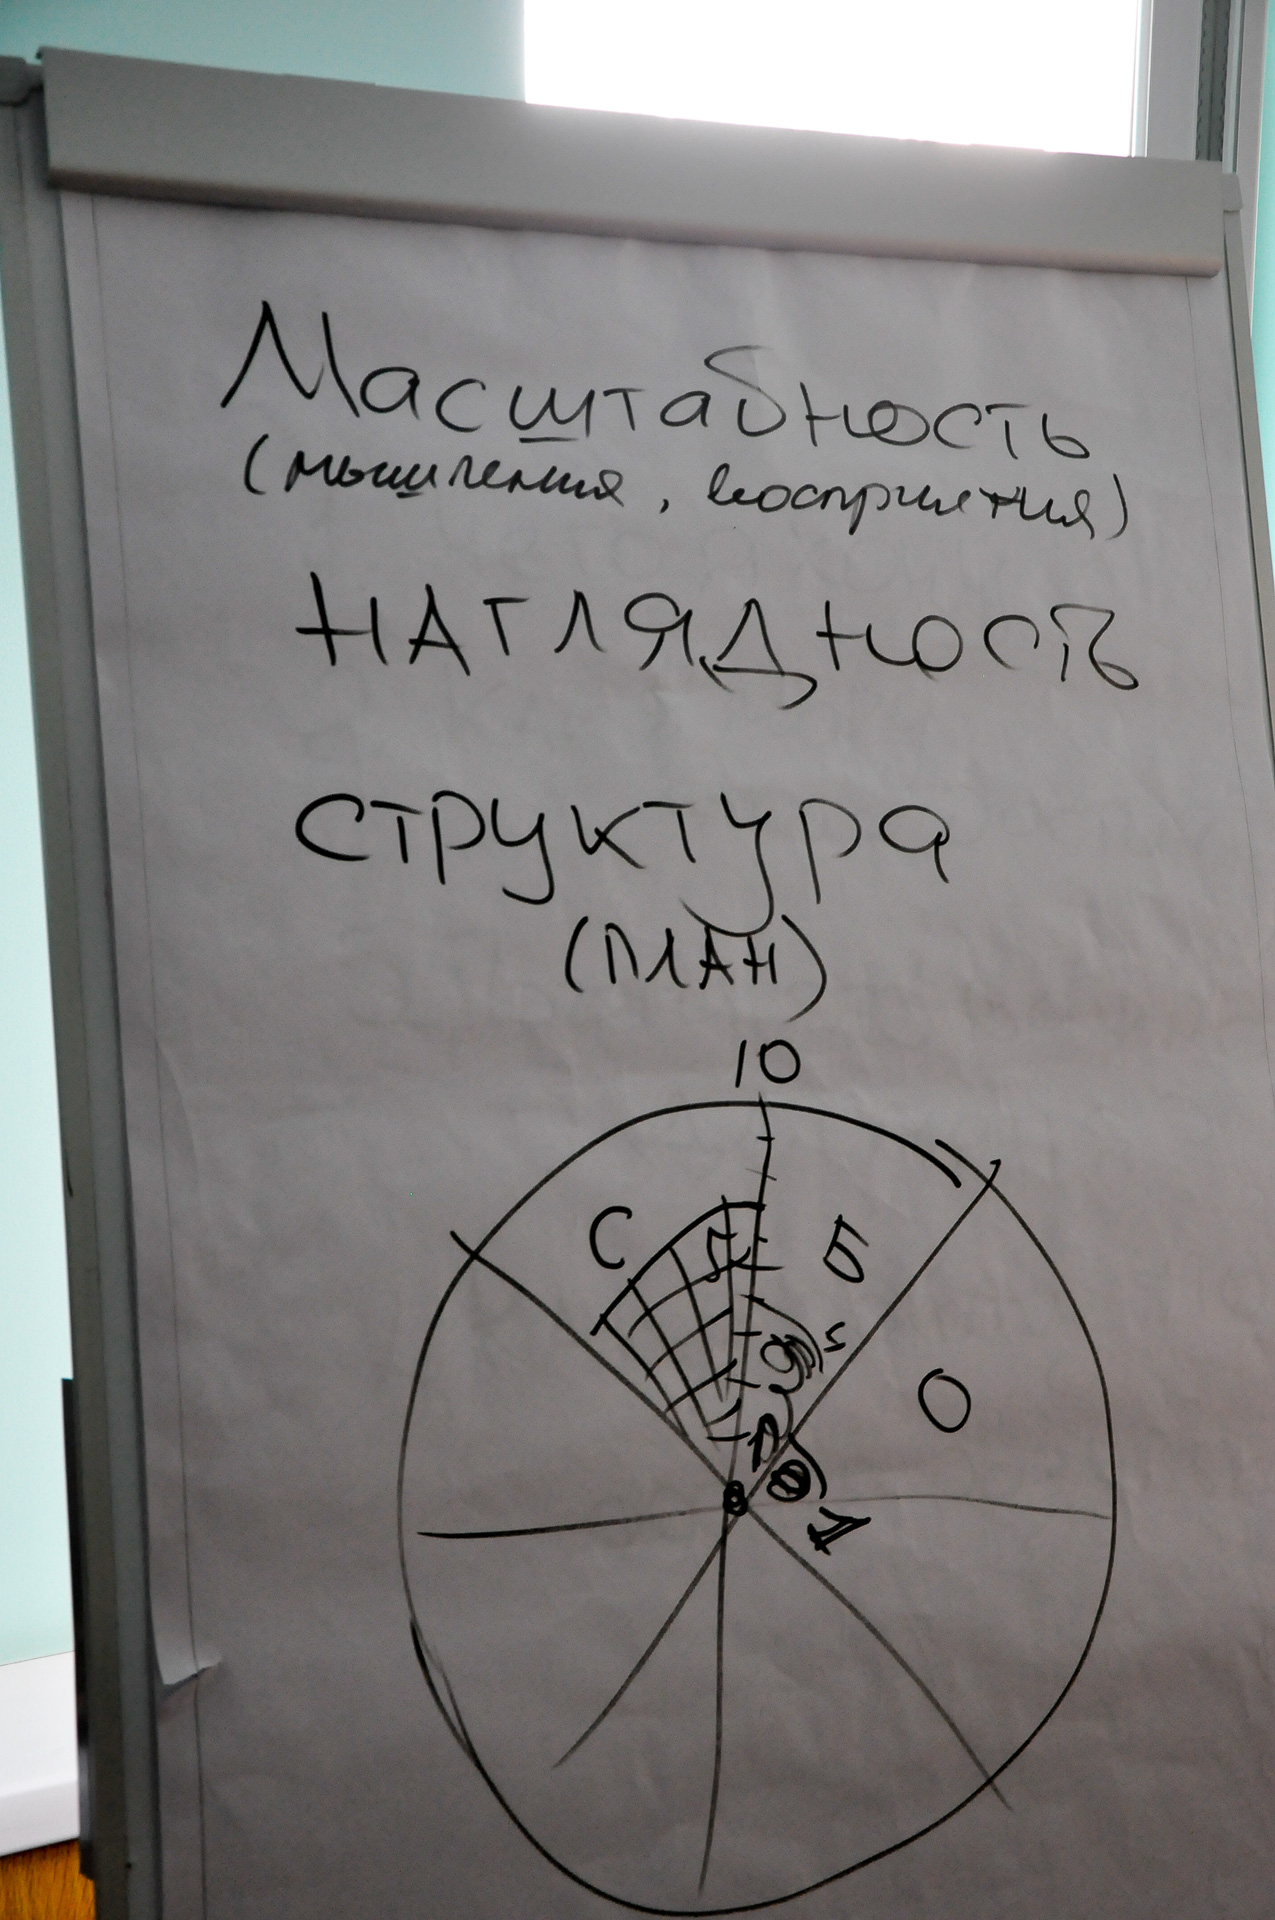 Масштабность
(мышления, восприятия)
НАГЛЯДНОСТЬ
СТРУКТУРА
(ПЛАН)
10
С
Б
5
О